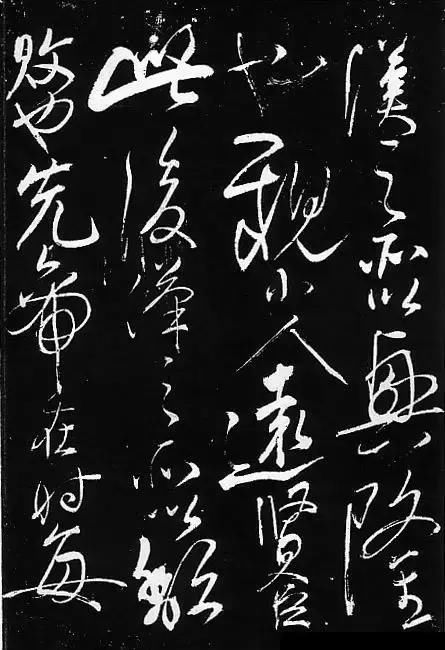 漢之所以興隆
也親小人遠賢臣
此後漢之所以頹
敗也先帝在时每